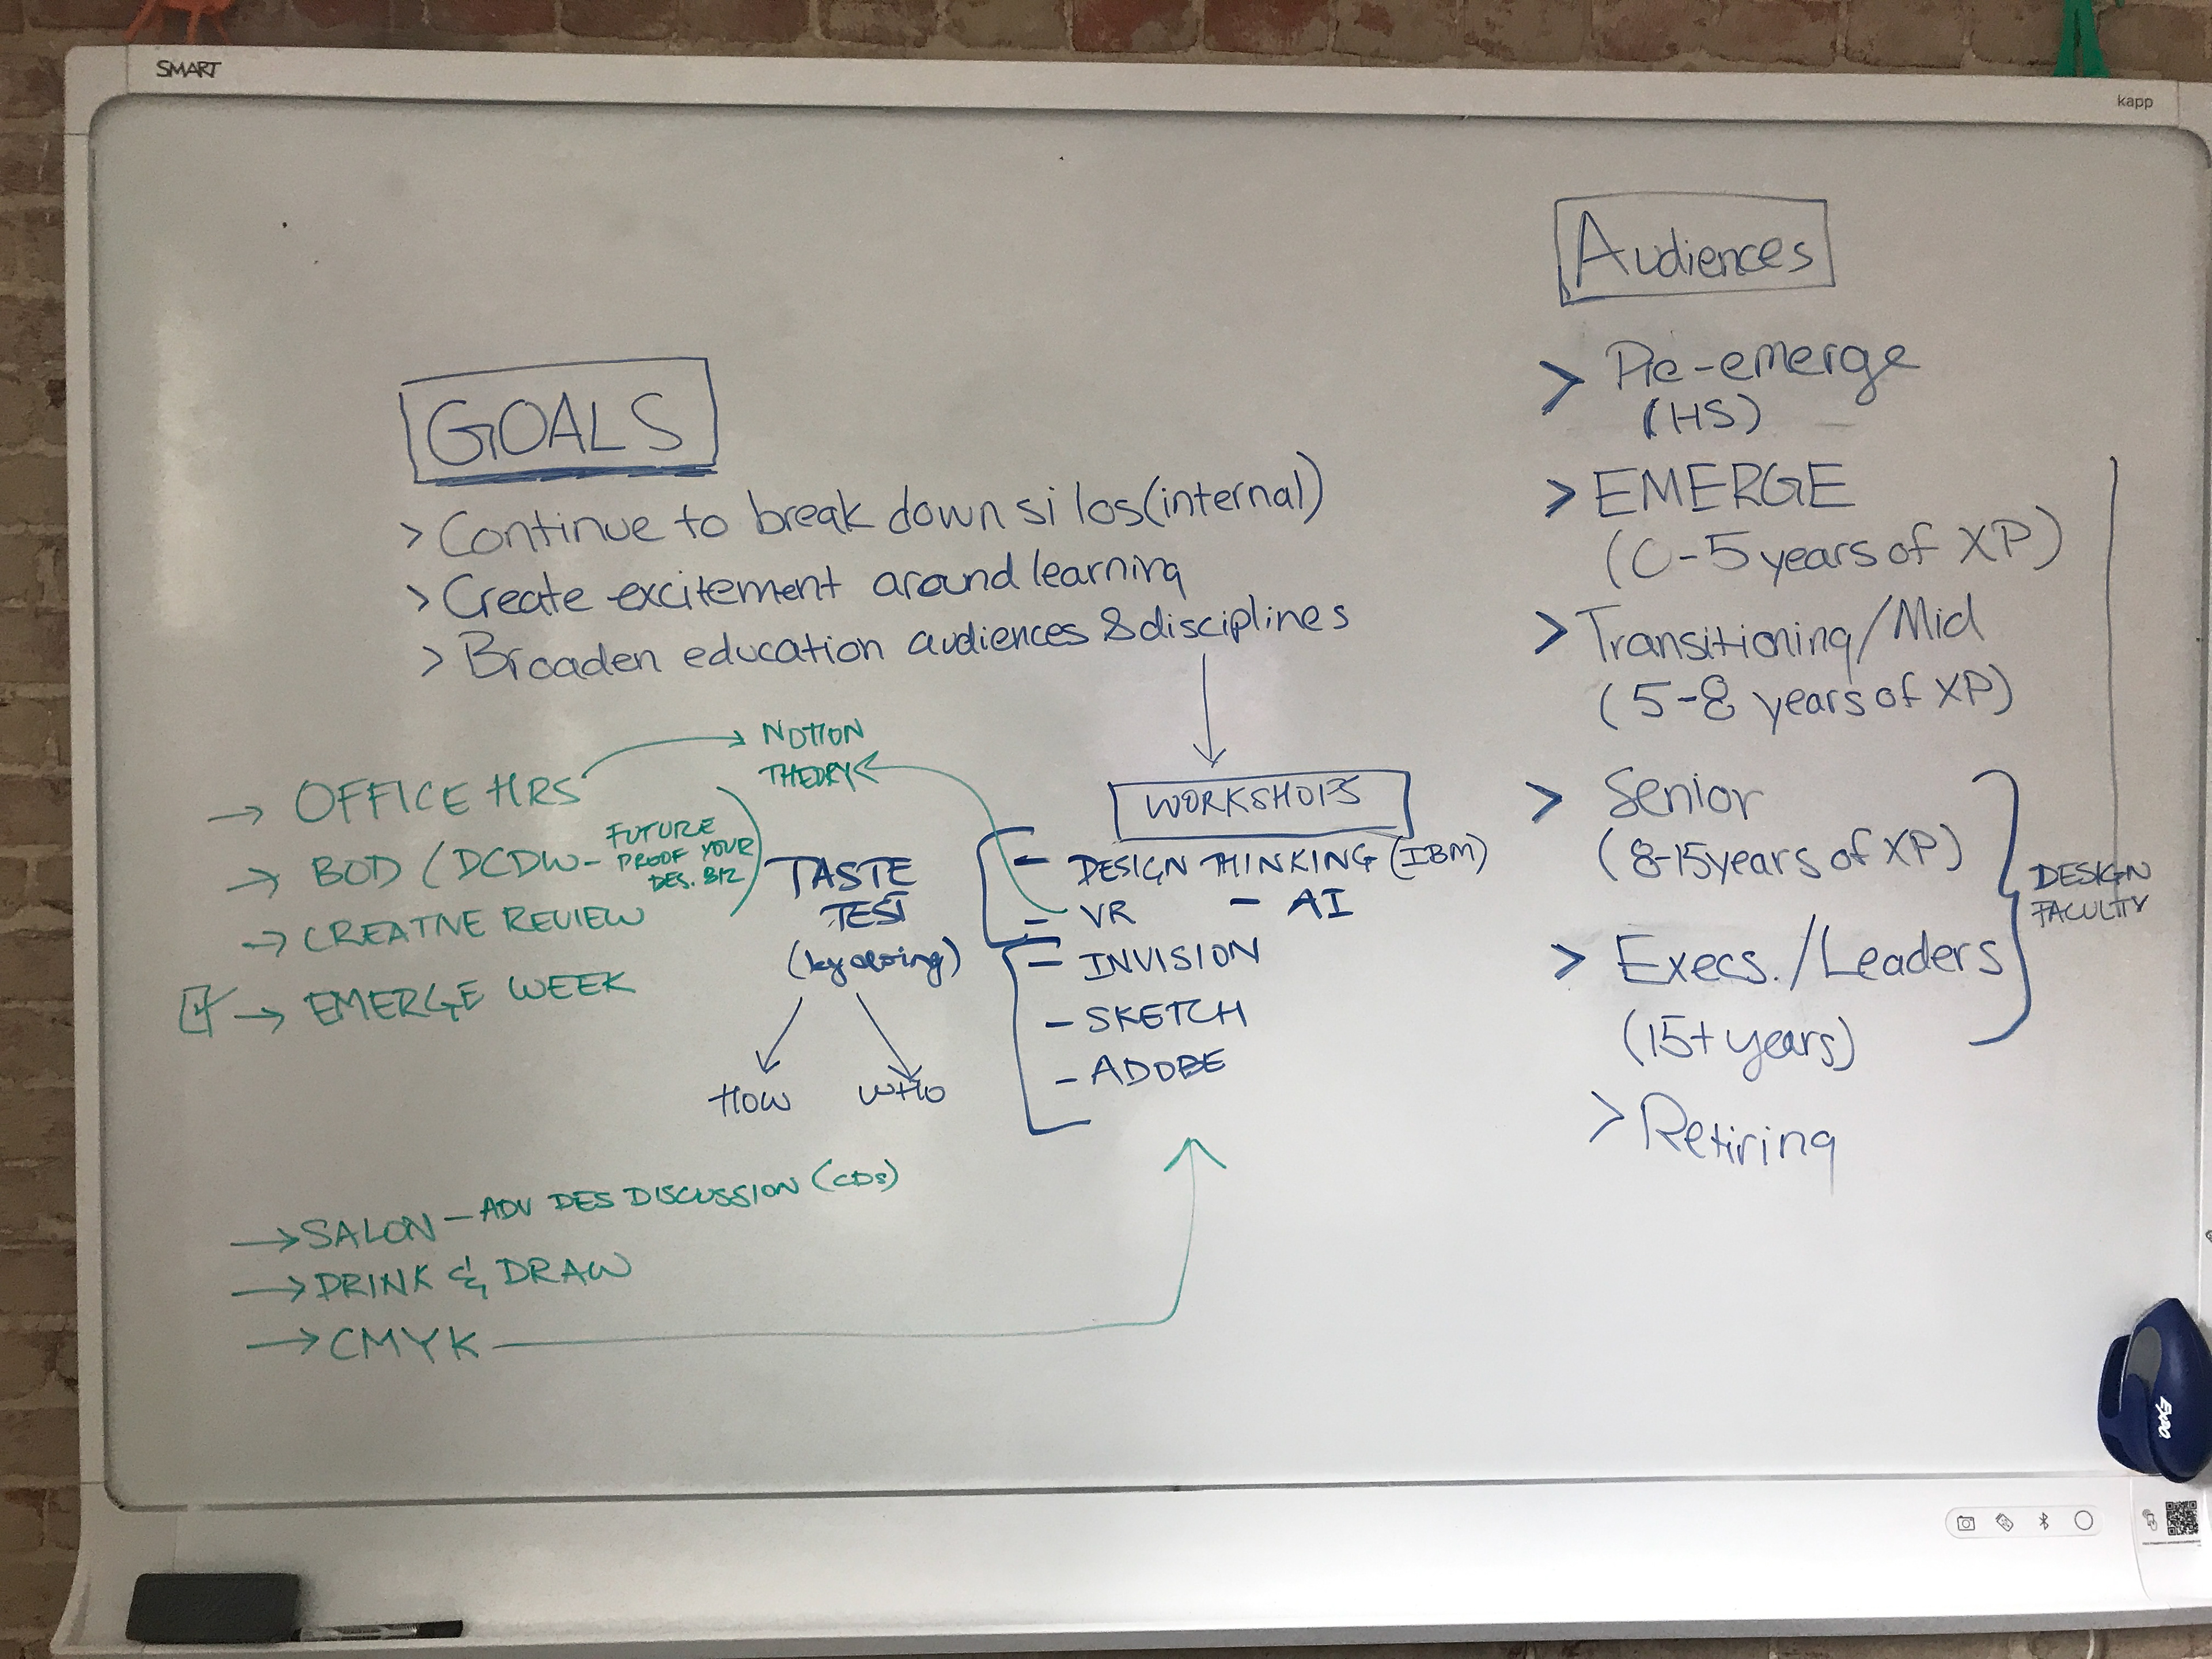 SMART
kapp
GOALS
> Continue to break down silos (internal)
> Create excitement around learning
> Broaden education audiences & disciplines
→ OFFICE HRS
NOTION
THEORY
→ BOD (DCDW - FUTURE
PROOF YOUR
DES. BIZ)
→ CREATIVE REVIEW
→ EMERGE WEEK
TASTE
TEST
HOW
WHO
WORKSHOPS
- DESIGN THINKING (IBM)
- VR - AI
- INVISION
- SKETCH
- ADOBE
→ SALON - ADV DES DISCUSSION (CDs)
→ DRINK & DRAW
→ CMYK
Audiences
> Pre-emerge
(HS)
> EMERGE
(0-5 years of XP)
> Transitioning/Mid
(5-8 years of XP)
> Senior
(8-15 years of XP)
> Execs./Leaders
(15+ years)
> Retiring
DESIGN
FACULTY
EXPO